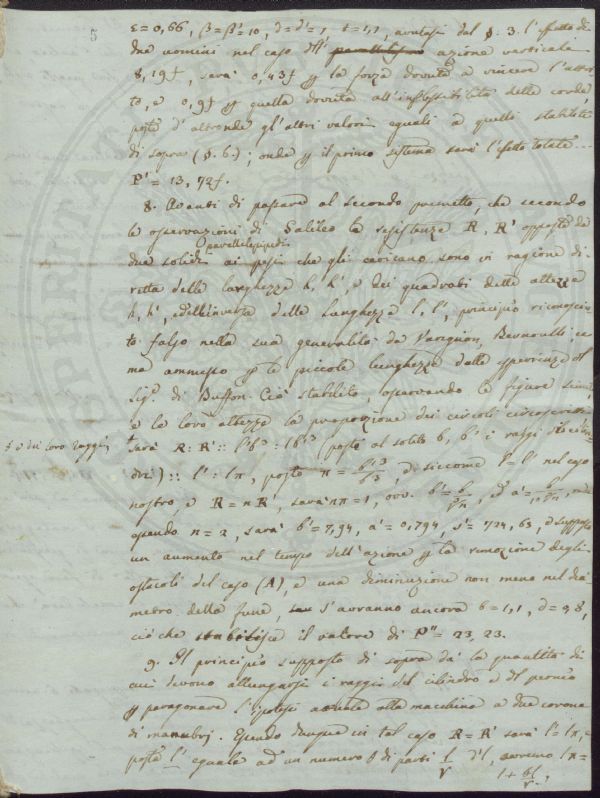 5
ε=0,66, β=β'=10, d=d'=1, t=1,1, avutasi dal §. 3. l'effetto di
due uomini nel caso dell' azione verticale
8,19f, sarà 0,43f la forza dovuta a vincere l'attri
to, e 0,9f quella dovuta all'inflessibilità delle corde,
poste d'altronde gl'altri valori eguali a quelli stabiliti
di sopra (§. 6.); onde il primo sistema sarà l'effetto totale ...
P' = 13,72f.
8. Avanti di passare al secondo, che secondo
le osservazioni di Galileo le resistenze R, R' opposte da
due solidi parallelepipedi ai pesi che gli caricano sono in ragione di-
retta delle larghezze b, b', e dei quadrati delle altezze
h, h', ed inversa delle lunghezze l, l', principio riconosciu
to falso nella sua generalità da Varignon, Bernoulli,
ma ammesso le piccole lunghezze dalle sperienze del
Sig.r di Buffon. Ciò stabilito, osservando le figure simili
e le loro altezze la proporzione dei circoli circoscritti
e dei loro raggi,
sarà R : R' :: l'b³ : lb'³ posti al solito b, b' i raggi de' cilin
dri) :: l' : lπ, posto π = b'³/b³, e siccome l = l' nel caso
nostro, e R = nR', sarà nπ=1, ovv. b' = b/³√n, ed a' =
quando n = 2, sarà b' = 7,94, a' = 0,794, s' = 724,63, e supposto
un aumento nel tempo dell'azione la rimozione degli
ostacoli del caso (A), e una diminuzione non meno nel dia
metro della fune, s'avranno ancora t = 1,1, d = 0,8,
ciò che stabilisce il valore di P'' = 23,23.
9. Il principio supposto di sopra dà la quantità di
cui devono allungarsi i raggi del cilindro e del pernio
paragonare l'ipotesi attuale alla macchina a due corone
di manubrj. Essendo dunque in tal caso R = R' sarà l' = lπ, e
posto l' eguale ad un numero di parti l/r d'l, avremo lπ =